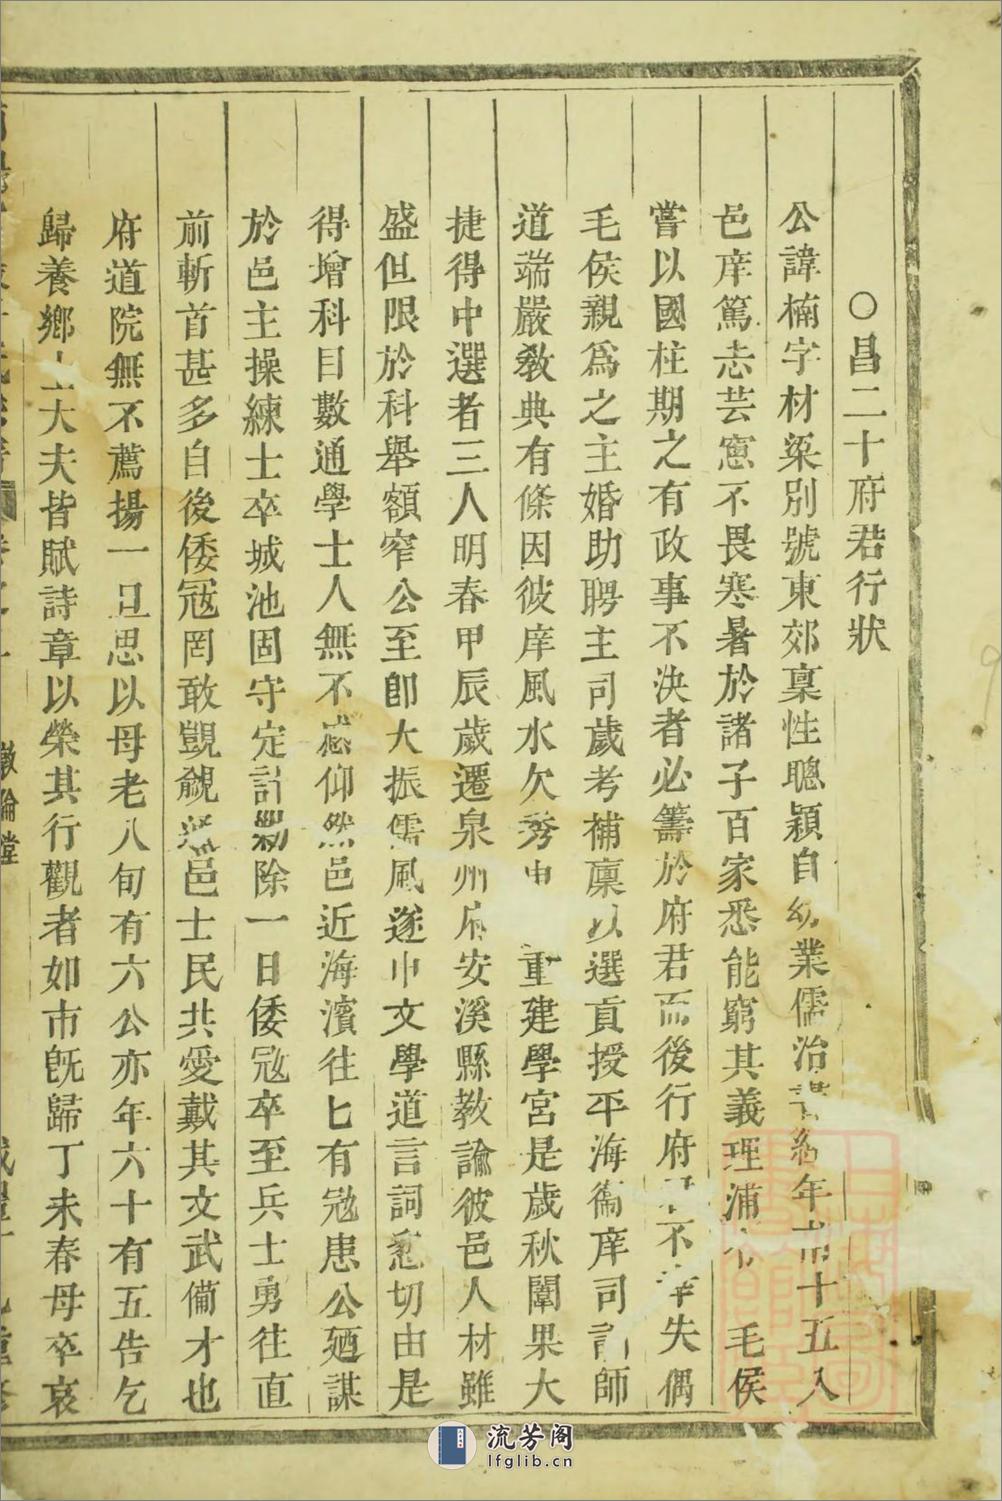 ○昌二十府君行狀
公諱楠字材梁別號東郊稟性聰穎自幼業儒治書經年甫十五入
邑庠篤志芸窻不畏寒暑於諸子百家悉能窮其義理浦 毛侯
嘗以國柱期之有政事不決者必籌於府君而後行府君不幸失偶
毛侯親爲之主婚助聘主司歲考補廩以選貢授平海衞庠司訓師
道端嚴敎典有條因彼庠風水欠秀申 重建學宮是歲秋闈果大
捷得中選者三人明春甲辰歲遷泉州府安溪縣教諭彼邑人材雖
盛但限於科舉額窄公至卽大振儒風遂申文學道言詞懇切由是
得增科目數通學士人無不感仰然邑近海濱往匕有冦患公廼謀
於邑主操練士卒城池固守定計勦除一日倭冦卒至兵士勇往直
前斬首甚多自後倭冦罔敢覬覦 邑士民共愛戴其文武備才也
府道院無不薦揚一旦思以母老八旬有六公亦年六十有五告乞
歸養鄉士大夫皆賦詩章以榮其行觀者如市旣歸丁未春母卒哀
敦倫堂
流芳阁
lfglib.cn